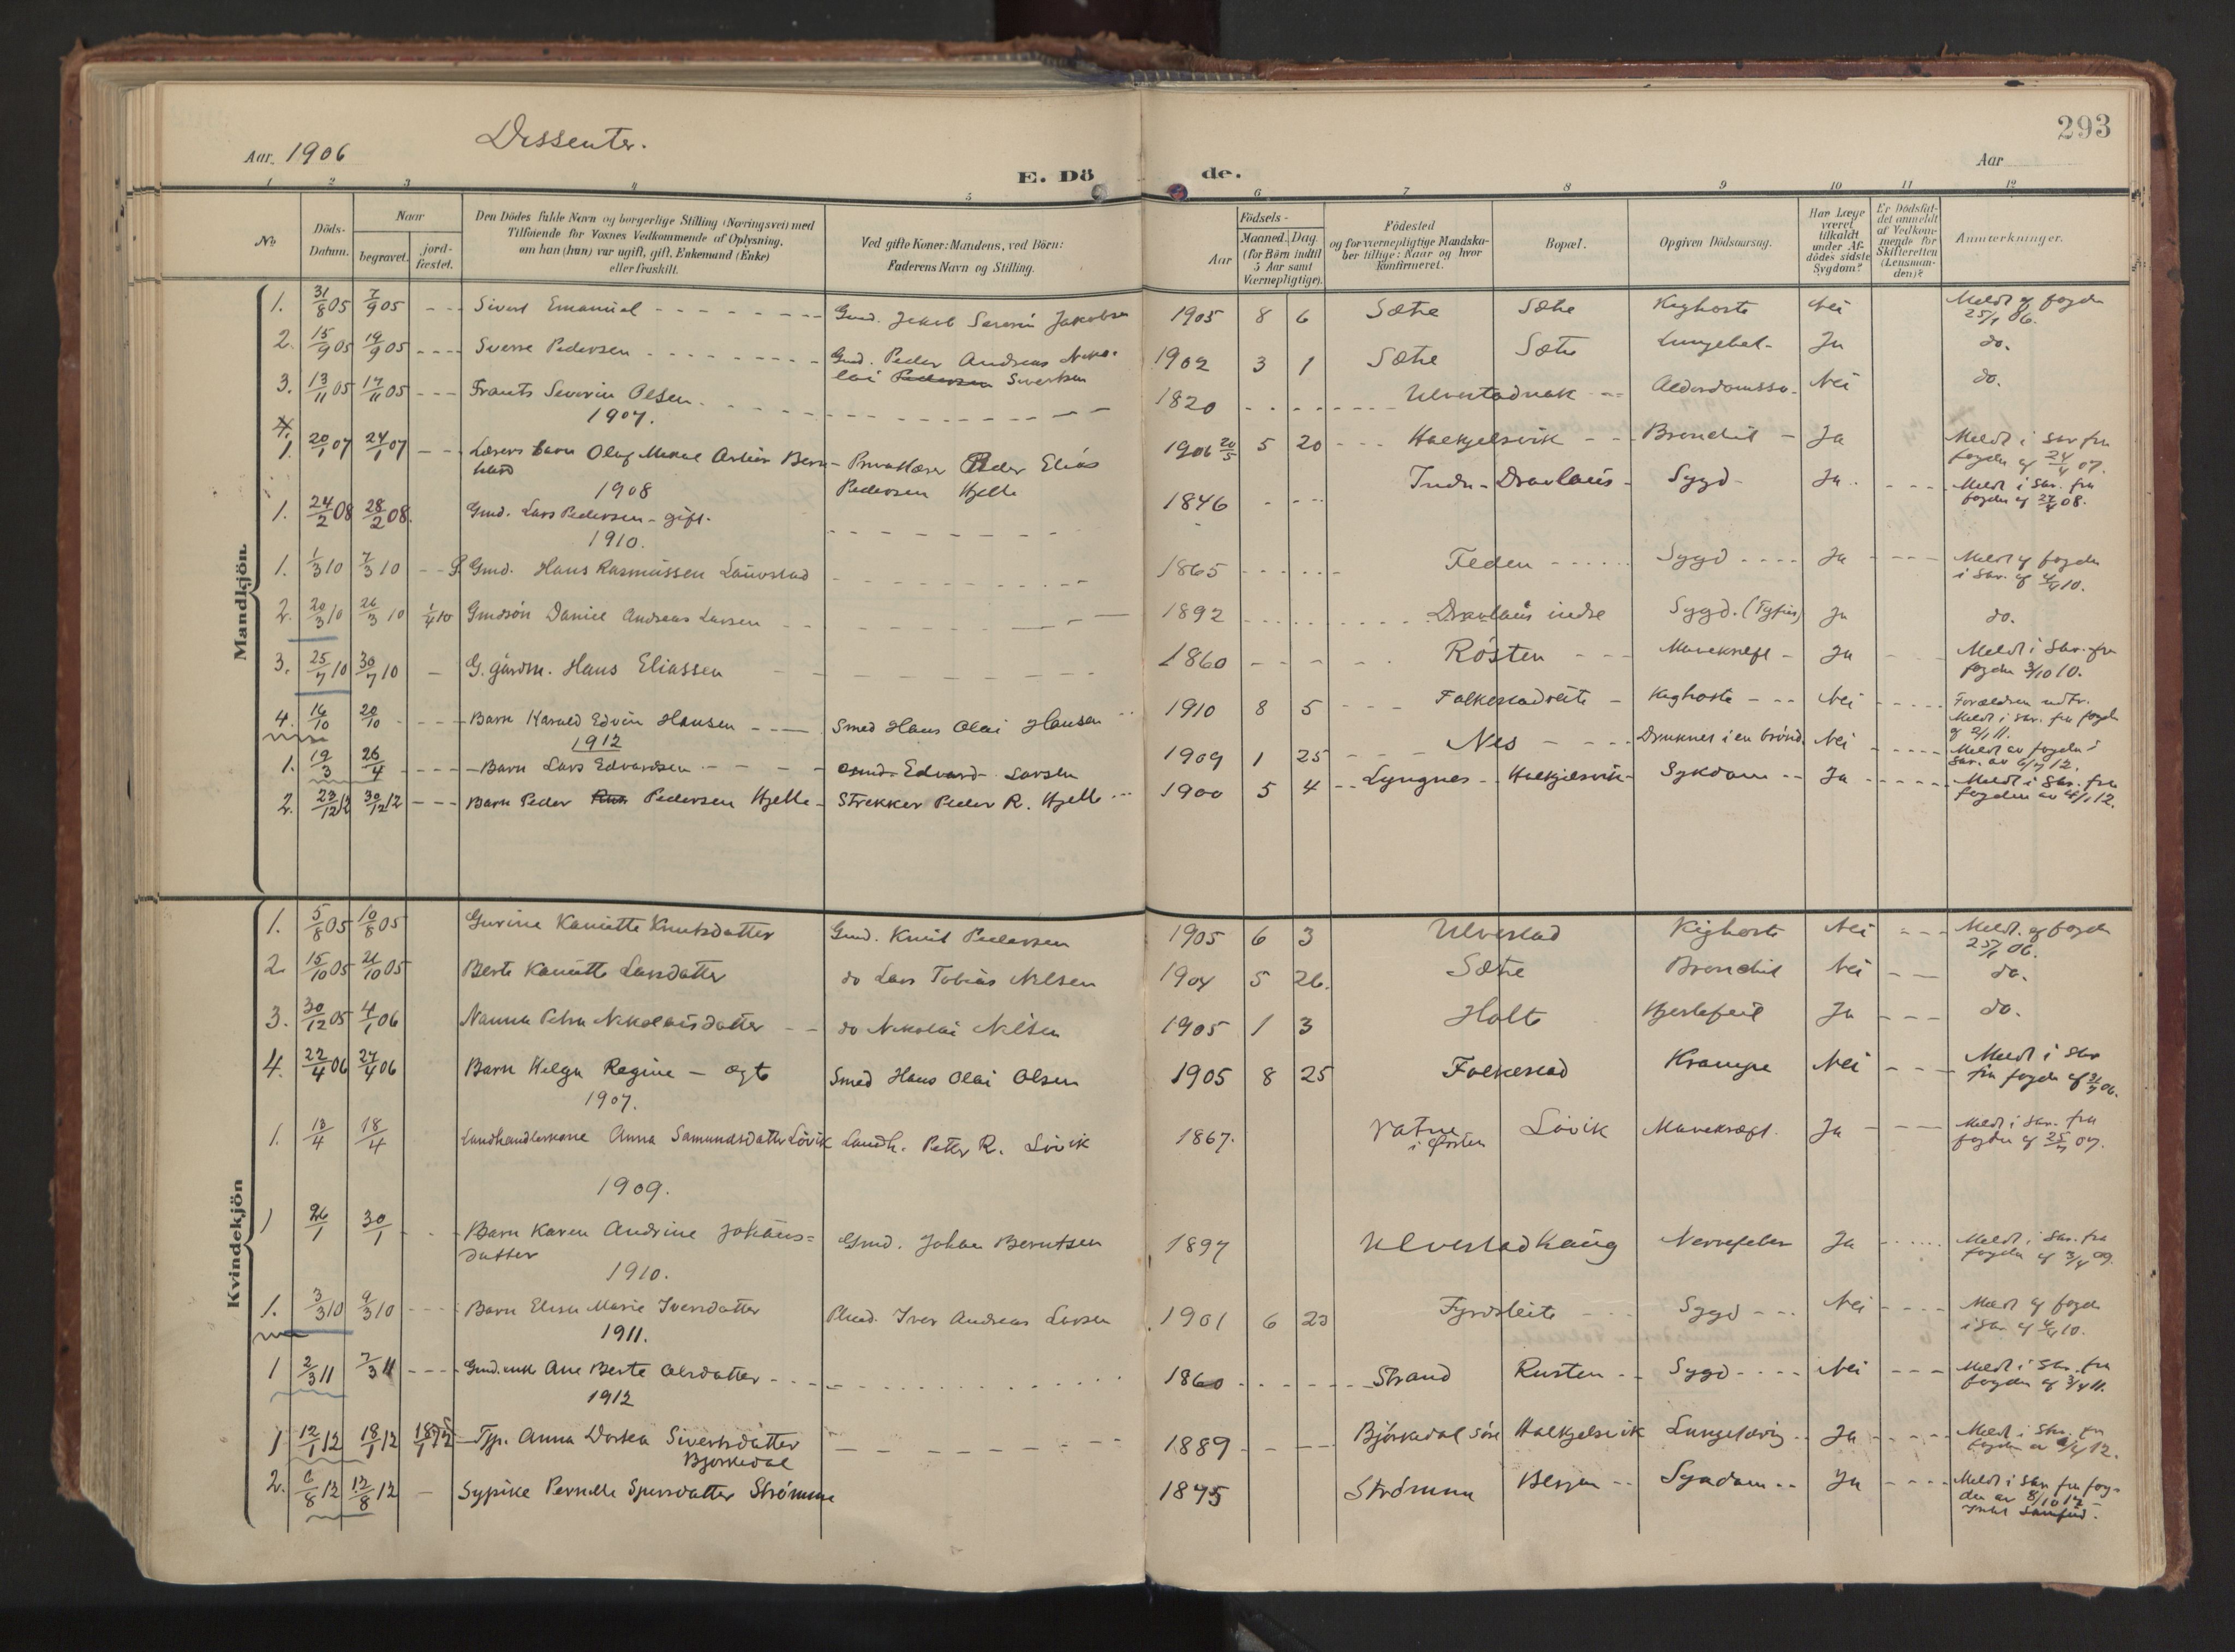 293
Aar 1906
Dissenter.
Aar
E. Dö
de.
1 2 3 4 5 6 7 8 9 10 11 12
No
Döds-Datum.
Naar
begravet.
jord-fæstet.
Den Dödes fulde Navn og borgerlige Stilling (Næringsvei) med
Tilföiende for Voxnes Vedkommende af Oplysning,
om han (hun) var ugift, gift, Enkemand (Enke)
eller fraskilt.
Ved gifte Koner: Mandens, ved Börn:
Faderens Navn og Stilling.
Födsels-
Aar
Maaned. Dag
(for Börn indtil
5 Aar samt
Værnepligtige).
Födested
og for værnepligtige Mandska-
ber tillige: Naar og hvor
konfirmeret.
Bopæl.
Opgiven Dödsaarsag.
Har Læge
været
tilkaldt
under Af-
dödes sidste
Sygdom?
Er Dödsfal-
det anmeldt
af Vedkom-
mende for
Skifteretten
(Lensman-
den)?
Anmærkninger.
Mandkjön.
1. 31/8 05 7/9 05 Sivert Emanuel Gmd. Jakob Severin Jakobsen 1905 8 6 Sætre Sætre Kighoste Nei Meldt af fogden
25/1 06.
2. 15/9 05 19/9 05 Sverre Pedersen Gmd. Peder Andreas Niko-
lai Pedersen Sivertsen 1902 3 1 Sætre Sætre Lungebet. Ja do.
3. 13/11 05 17/11 05 Frants Severin Olsen 1820 Ulvestadvak Alderdomssv. Nei do.
1907.
1. 20/1 07 24/1 07 Lærers barn Olaf Mikal Privatlærer Peder Elias
Pedersen Hjelle 1906 20/5 5 20 Halkjelsvik Bronchit Ja Meldt i skr fra
fogden af 24/4 07.
1908
1. 24/2 08 28/2 08. Gmd. Lars Pedersen - gift. 1846 Indre Dravlaus Sygd Ja Meldt i skr. fra
fogden af 24/4 08.
1910.
1. 1/3 10 7/3 10 Gmd. Hans Rasmussen Lauvstad 1865 Feden Sygd Ja Meldt af fogden
i skr. af 4/4 10.
2. 20/3 10 26/3 10 1/4 10 Gmdsön Daniel Andreas Larsen 1892 Dravlaus indre Sygd. (Tyfus) Ja do.
3. 25/7 10 30/7 10 G. gårdm. Hans Eliassen 1860 Rösten Mavekræft Ja Meldt i Skr. fra
fogden 3/10 10.
4. 16/10 20/10 Barn Harald Edvin Hansen Smed Hans Olai Hansen 1910 8 5 Folkestadreite Kighoste Nei Forældren udtr.
Meldt i skr. fra fogden
af 2/1 11.
1912
1. 19/3 26/4 Barn Lars Edvardsen Gmd. Edvard Larsen 1909 1 25 Nes Druknet i en brönd. Nei Meldt av fogden i
skr. av 6/7 12.
2. 23/12 12 30/12 12 Barn Peder Pedersen Hjelle Strekker Peder R. Hjelle 1900 5 4 Lyngnes Halkjelsvik Sykdom Ja Meldt i Skr. fra
fogden av 4/1 12.
Kvindekjön
1. 5/8 05 10/8 05 Gurine Kamitte Knutsdatter Gmd. Knut Pedersen 1905 6 3 Ulvestad Kighoste Nei Meldt. af fogden
25/1 06.
2. 15/10 05 21/10 05 Berte Kamitte Larsdatter do Lars Tobias Nilsen 1904 5 26. Sætre Bronchit Nei do.
3. 30/12 05 4/1 06 Nanna Petra Nikolaisdatter do Nikolai Nilsen 1905 1 3 Holte Hjertefeil Ja do.
4. 22/4 06 27/4 06 Barn Helga Regine - ægte Smed Hans Olai Olsen 1905 8 25 Folkestad Krampe Nei Meldt i skr
fra fogden af 31/7 06.
1907.
1. 13/4 18/4 Landhandlerkone Anna Samundsdatter Lövik Landh. Peter R. Lövik 1867. Vatne
i Örsten Lövik Mavekræft. Ja Meldt i skr. fra
fogden af 25/7 07.
1909.
1 26/1 30/1 Barn Karen Andrine Johans=
datter Gmd. Johan Berntsen 1897 Ulvestad Haug Nervefeber Ja Meldt i skr. fra
fogden af 3/4 09.
1910.
1. 3/3 10 9/3 10 Barn Elisa Marie Iversdatter Plmd. Iver Andreas Larsen 1901 6 23 Fyrdsleite Sygd Nei Meldt af fogden
i skr af 4/4 10.
1911.
1 2/3 11 7/3 11 Gmd.enk Ane Berte Olsdatter 1860 Strand Rusten Sygd Nei Meldt i skr. fra
fogden af 3/4 11.
1912
1 12/1 12 18/1 12 18/1 12 Tjp. Anna Dortea Sivertsdatter
Bjørkedal 1889 Bjørkedal Halkjelsvik Lungetæring Ja Meldt i skr. fra
fogden av 2/4 12.
2. 6/8 12 13/8 12 Sypike Pernille Sjursdatter Strømme 1875 Strømme Bergen Sykdom Ja Meldt i skr fra fog-
den av 8/10 12 -
samfund.